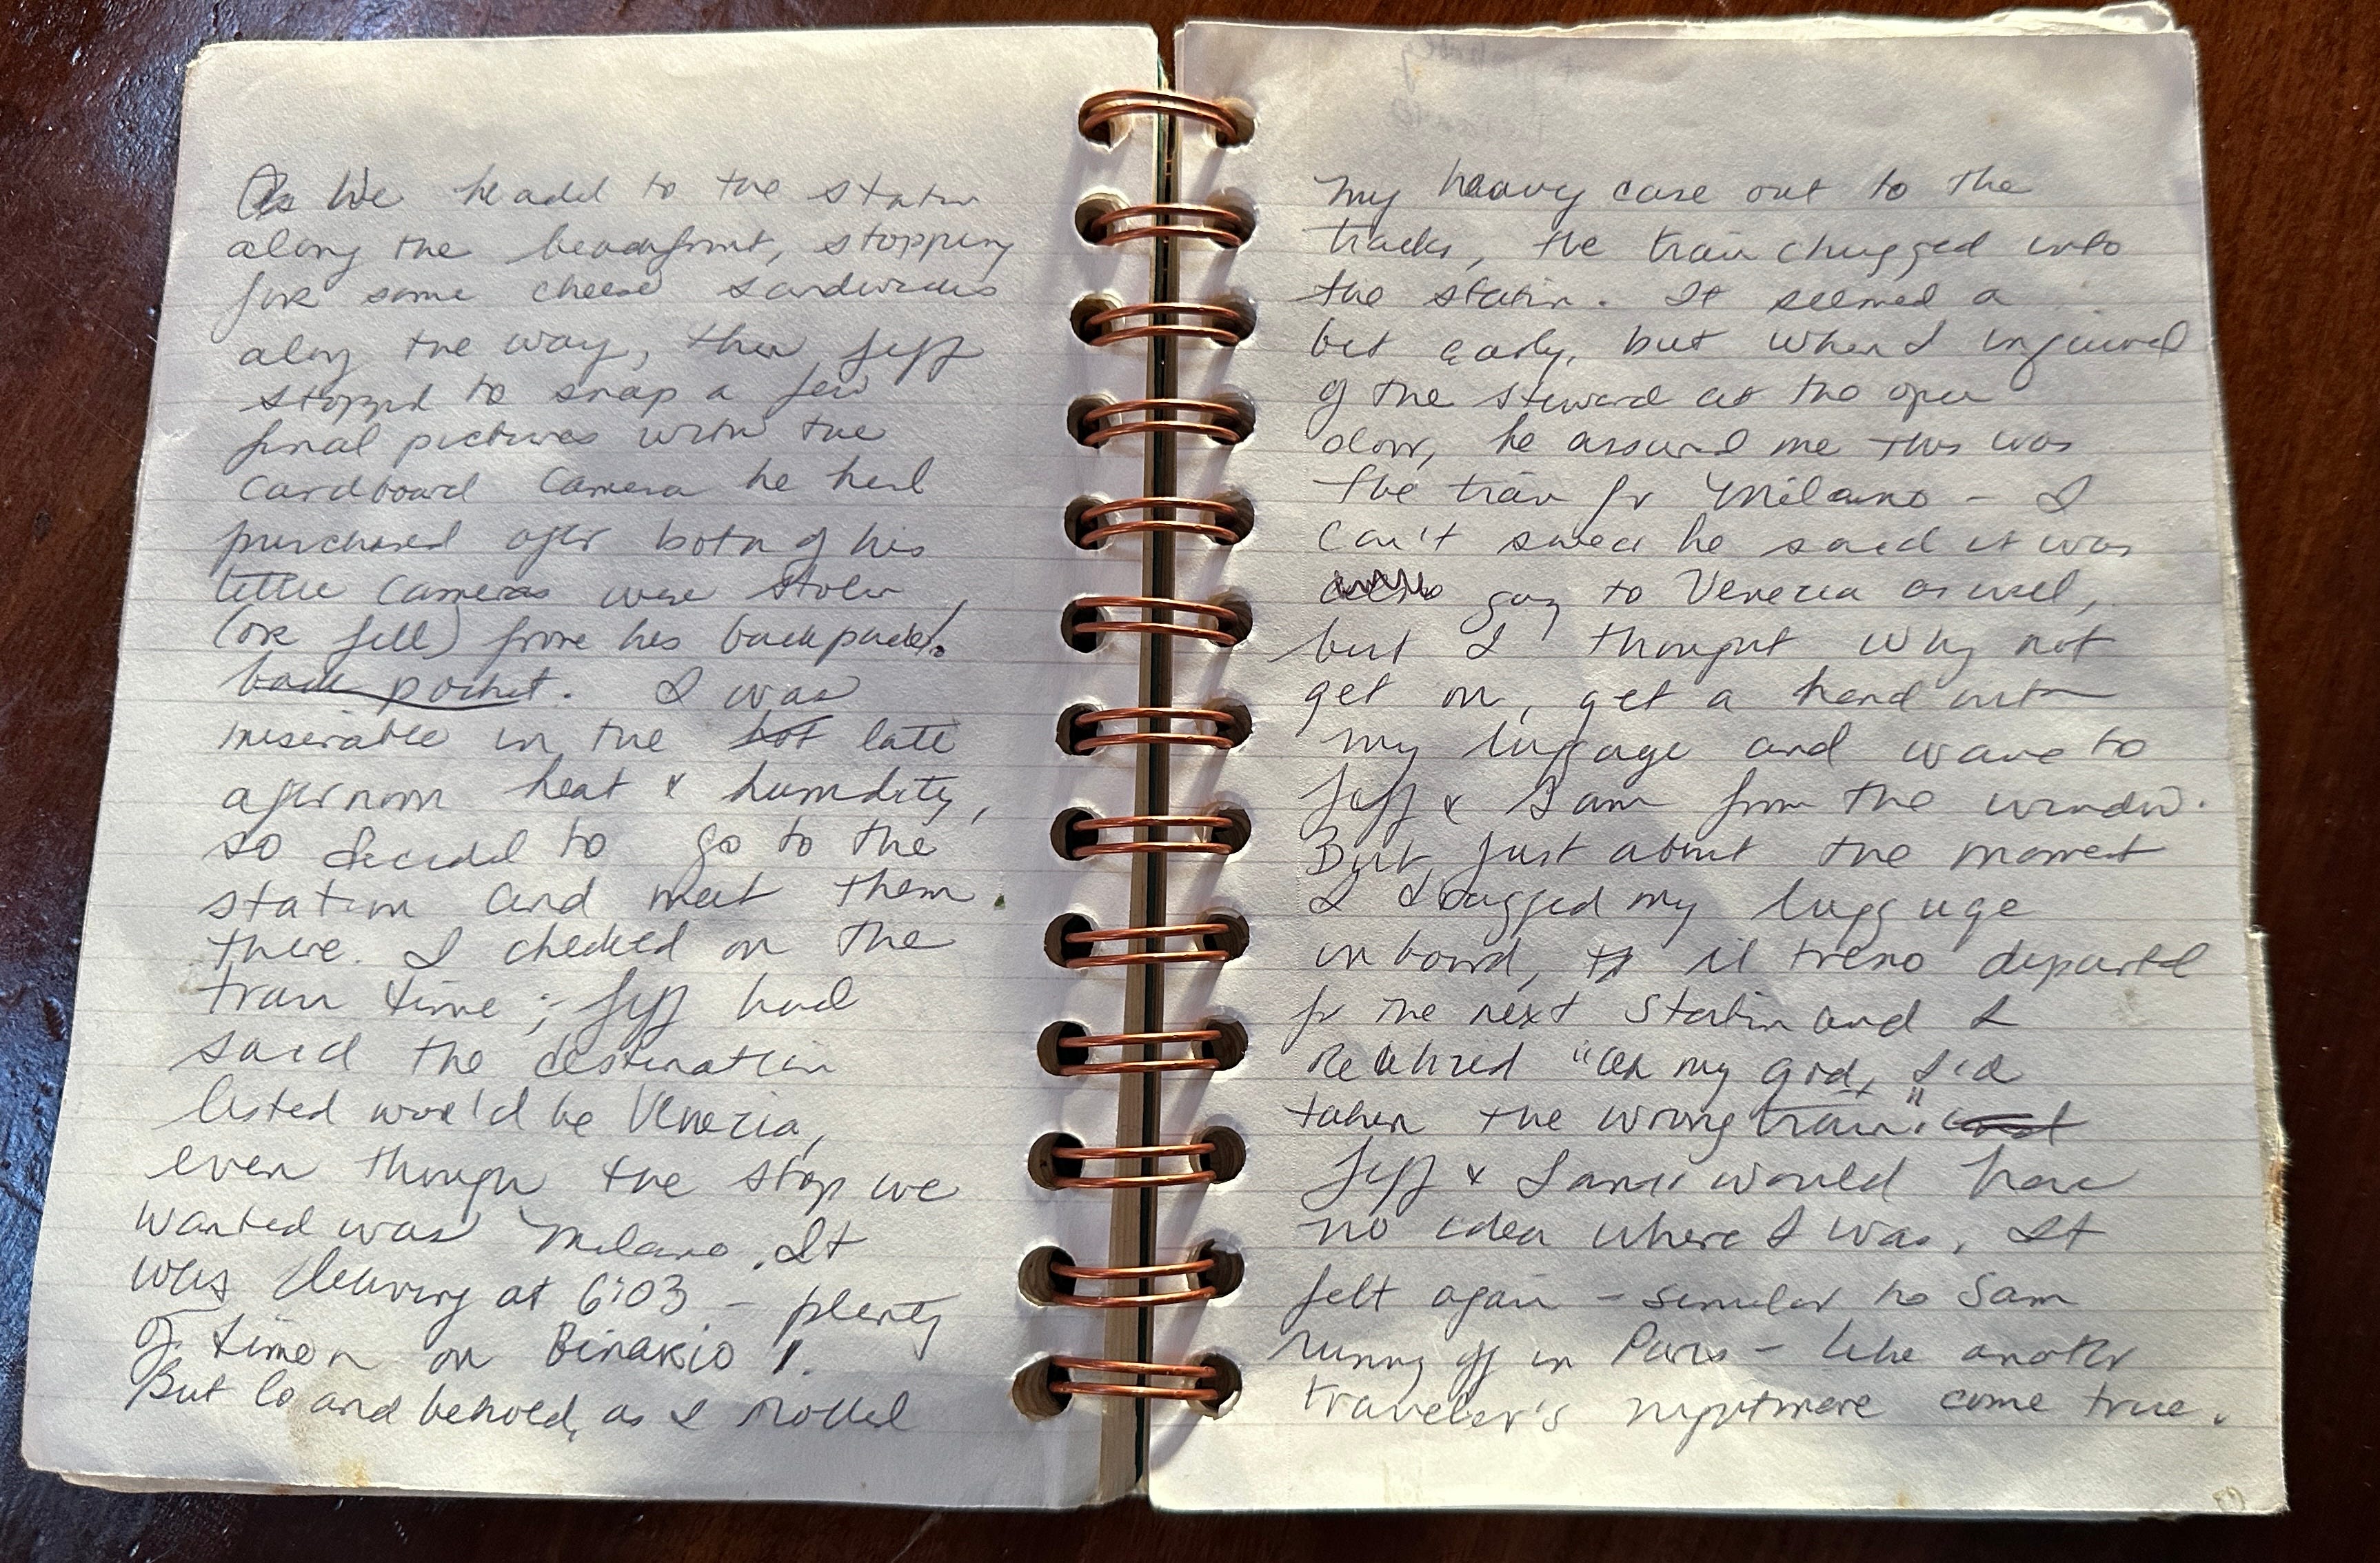 As We headed to the station
along the beachfront, stopping
for some cheese sandwiches
along the way, then Jeff
stopped to snap a few
final pictures with the
cardboard camera he had
purchased after both of his
little cameras were stolen
(or fell) from his backpack!
back pocket. I was
miserable in the hot late
afternoon heat & humidity,
so decided to go to the
station and meet them
there. I checked on the
train time; Jeff had
said the destination
listed would be Venezia,
even though the stop we
wanted was Milano. It
was leaving at 6:03 - plenty
of time on Binario 1.
But lo and behold, as I rolled
my heavy case out to the
tracks, the train chugged into
the station. It seemed a
bit early, but when I inquired
of the steward at the open
door, he assured me this was
the train for Milano - I
can't swear he said it was
going to Venezia as well,
but I thought why not
get on, get a hand with
my luggage and wave to
Jeff & Sam from the window.
But, just about the moment
I dragged my luggage
on board, il treno departed
for the next station and I
realized "Oh my god, I'd
taken the wrong train."
Jeff & Sam would have
no idea where I was. It
felt again - similar to Sam
running off in Paris - like another
traveler's nightmare come true.